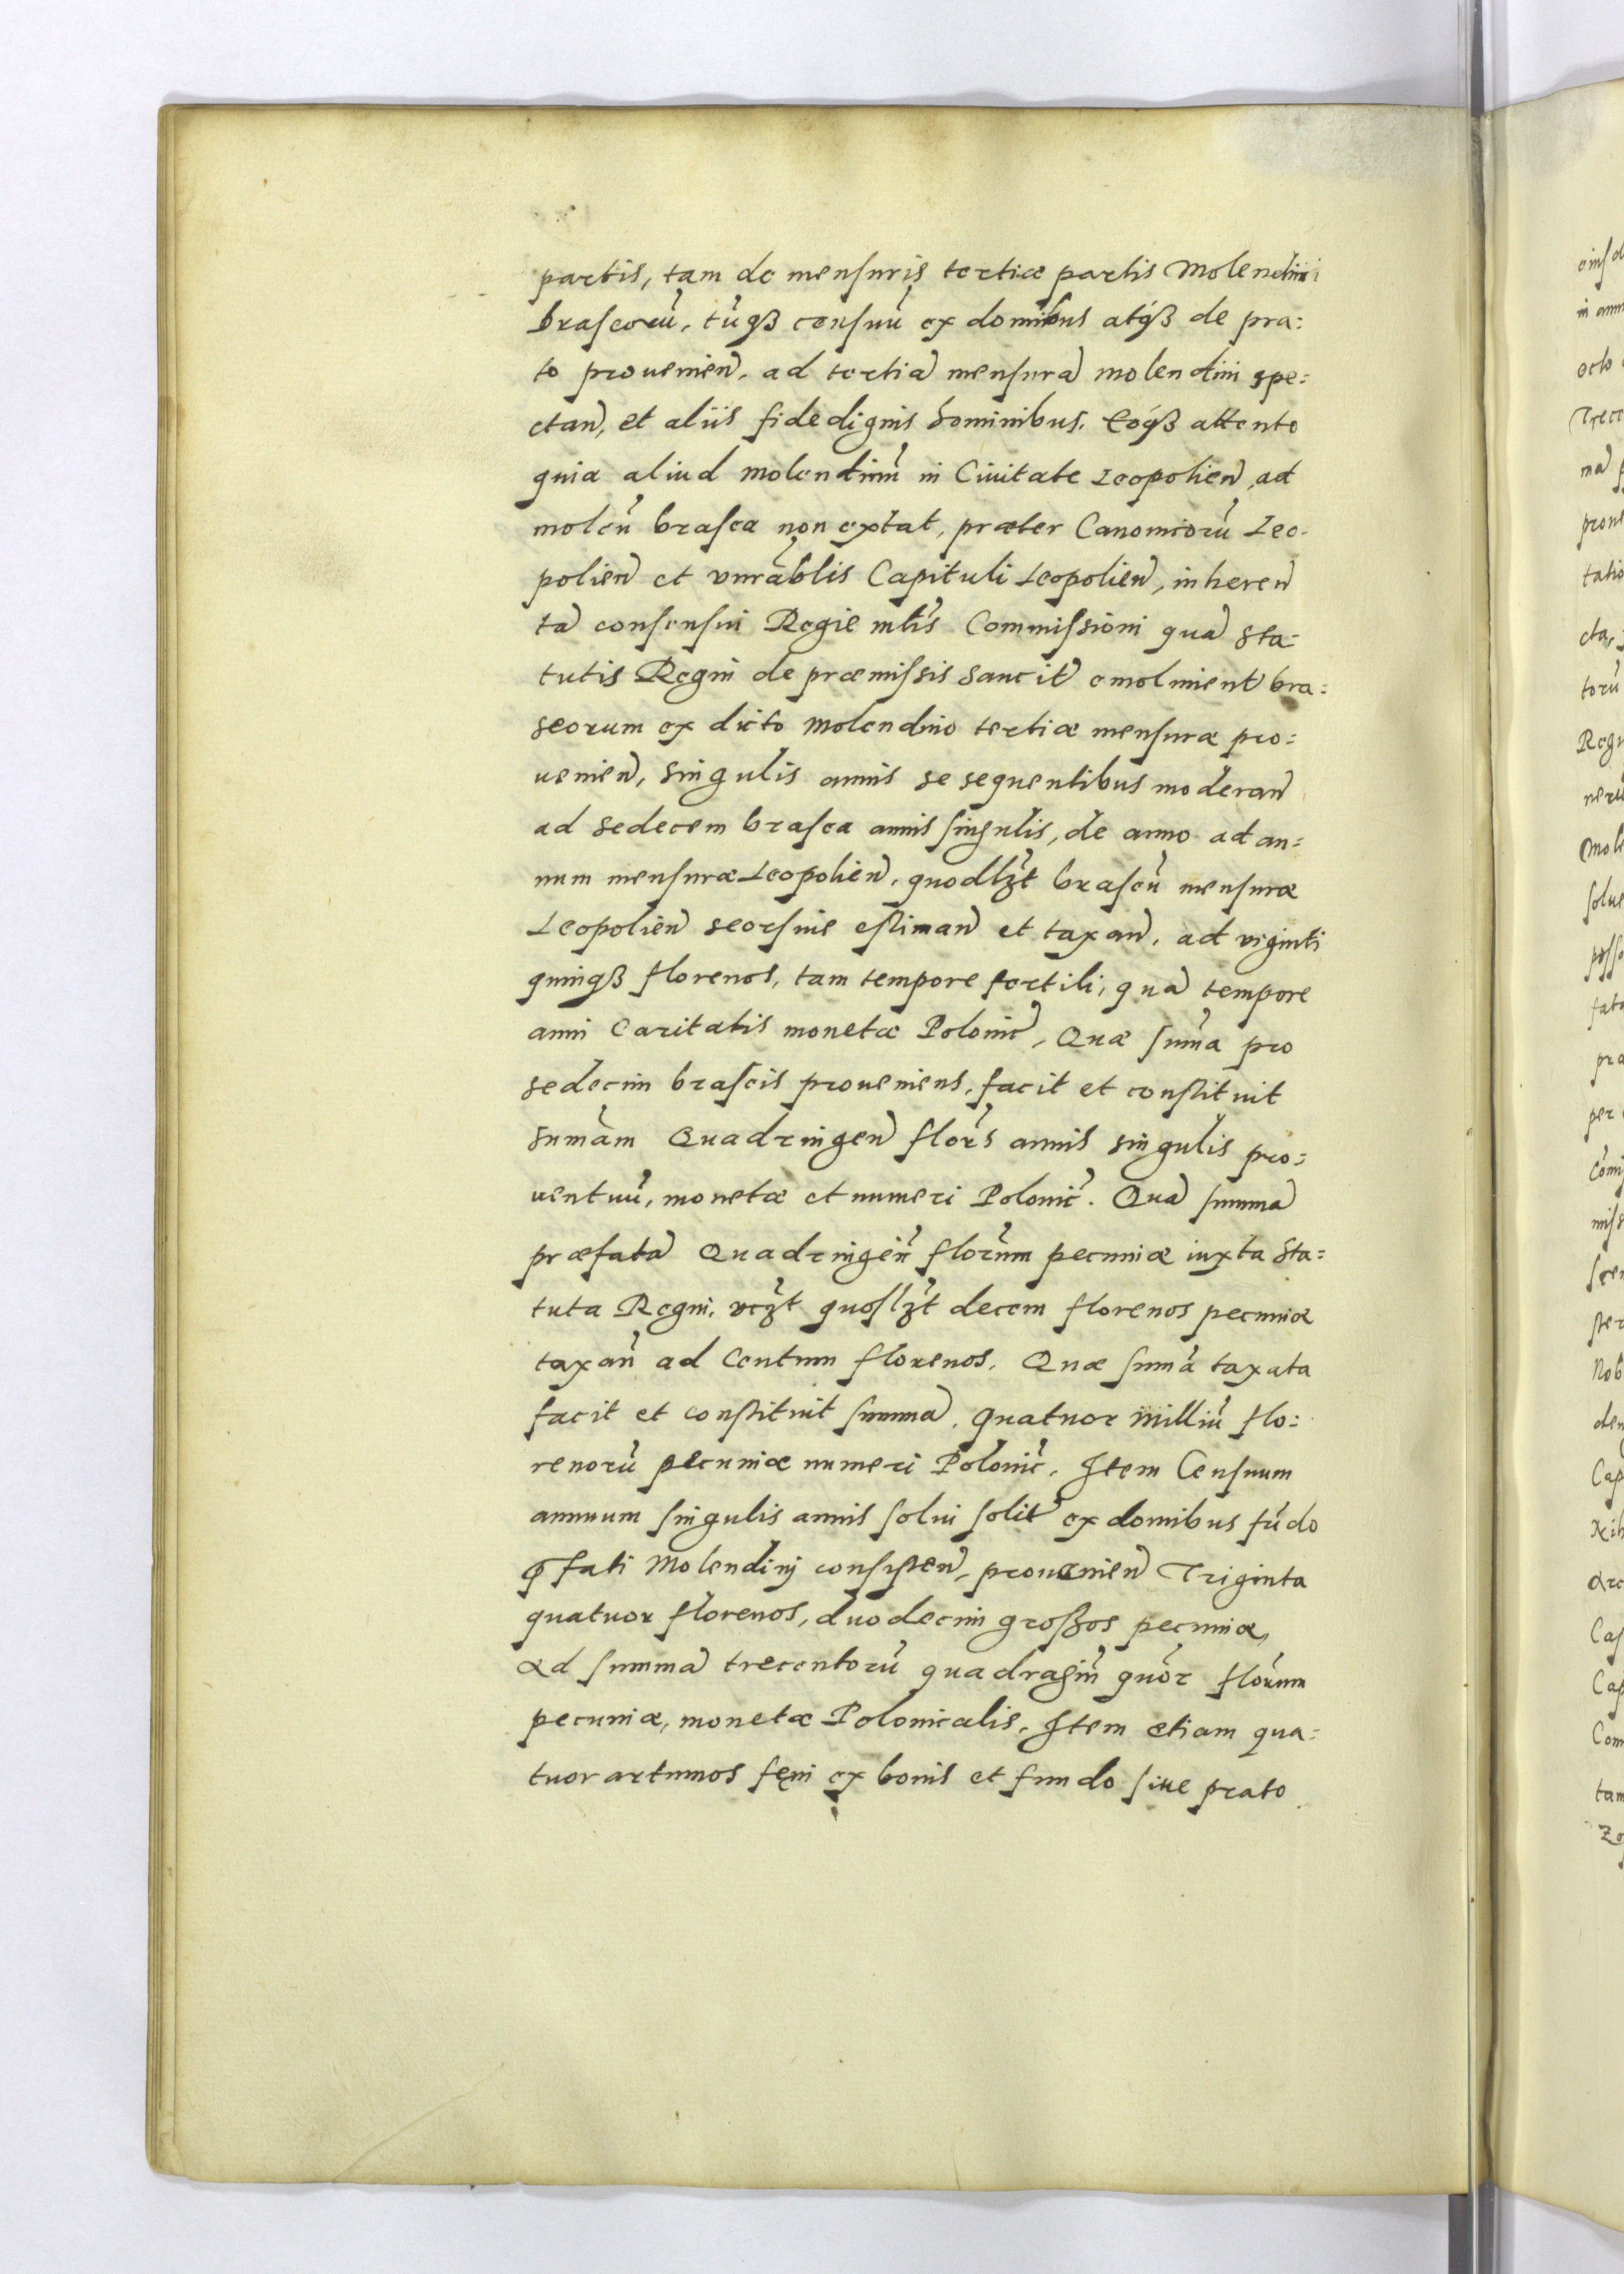 partis, tam de mensuris tertiæ partis Molendini
braseorū, tūqȝ censuū ex domibus atqȝ de pra:
to prouenien̄, ad tertiā mensurā molendini spe:
ctan̄, et aliis fidedignis hominibus. Eoqȝ attento
quia aliud Molendinū in Ciuitate Leopolien̄, ad
molen̄ brasea non extat, præter Canonicorū Leo-
polien̄ et vnrāblis Capituli Leopolien̄, inheren̄
tā consensui Regie mtis Commissioni quā sta-
tutis Regni de præmissis sancit̄ emoliment̄ bra:
seorum ex dicto Molendino tertiæ mensuræ pro:
uenien̄, singulis annis se sequentibus moderan̄
ad sedecem brasea annis singulis, de anno ad an:
num mensuræ Leopolien̄, quodlȝt braseū mensuræ
Leopolien̄ seorsiue estiman̄ et taxan̄, ad viginti
quinqȝ florenos, tam tempore fertili, quā tempore
anni Caritatis monetæ Polonic̄, Quæ sum̄a pro
sedecim braseis proueniens, facit et constituit
sumām Quadringen̄ flor̄s annis singulis pro:
uentuū, monetæ et numeri Polonic̄. Quā summā
præfatā Quadringen̄ flor̄um pecuniæ iuxta sta:
tuta Regni, vcȝt quoslȝt decem florenos pecuniæ
taxan̄ ad Centum florenos. Quæ sum̄a taxata
facit et constituit summā, quatuor milliū flo:
renorū pecuniæ numeri Polonic̄. Item Censuum
annuum singulis annis solui solit̄ ex domibus fūdo
p̄fati Molendinj consisten̄, prouenien̄ Triginta
quatuor florenos, duodecim großos pecuniæ,
Ad summā trecentorū quadragin̄ quōr flor̄um
pecuniæ, monetæ Polonicalis. Item etiam qua:
tuor artumos fęni ex bonis et fundo siue prato